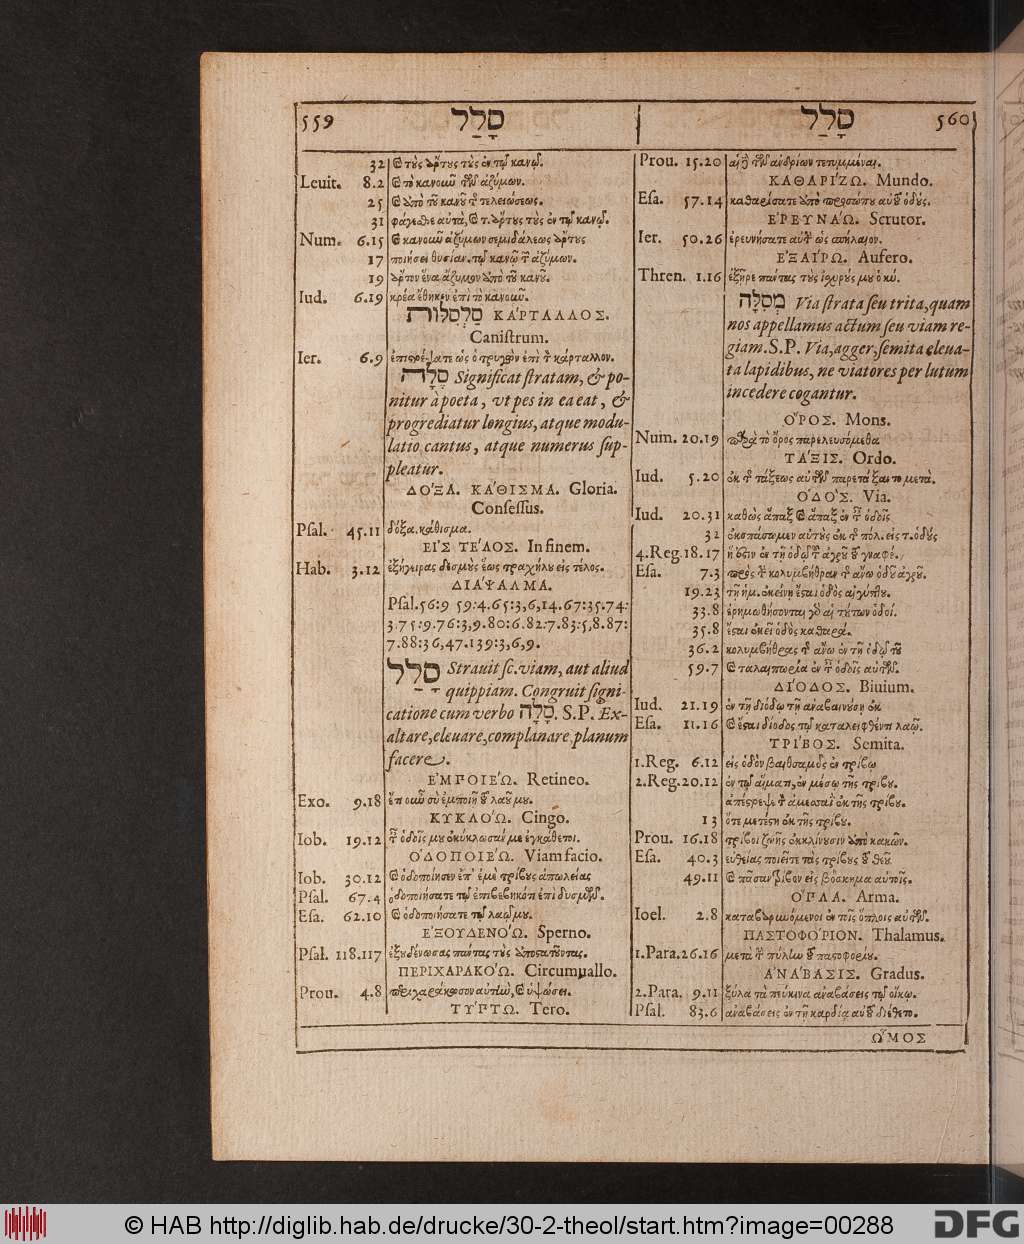 559 סָלַל
32 καὶ τοὺς ἄρτους τοὺς ἐν τῷ κανῷ.
Leuit. 8.2 καὶ τὸ κανοῦν τῶν ἀζύμων.
25 καὶ ἀπὸ τοῦ κανοῦ τῆς τελειώσεως.
31 φάγεσθε αὐτὰ, καὶ τ. ἄρτους τοὺς ἐν τῷ κανῷ.
Num. 6.15 καὶ κανοῦν ἀζύμων σεμιδάλεως ἄρτους
17 ποιήσει θυσίαν. τῷ κανῷ τῶν ἀζύμων.
19 ἄρτον ἕνα ἄζυμον ἀπὸ τοῦ κανοῦ.
Iud. 6.19 κρέα ἔθηκεν ἐπὶ τὸ κανοῦν.
סַלְסִלּוֹת ΚΑΡΤΑΛΛΟΣ.
Canistrum.
Ier. 6.9 ἐπιστρέψατε ὡς ὁ τρυγῶν ἐπὶ τὸν κάρταλλον.
סֶלָה Significat stratam, & po-
nitur à poeta, vt pes in ea eat, &
progrediatur longius, atque modu-
latio cantus, atque numerus sup-
pleatur.
ΔΟΞΑ. ΚΑΘΙΣΜΑ. Gloria.
Consessus.
Psal. 45.11 δόξα. κάθισμα.
ΕΙΣ ΤΕΛΟΣ. In finem.
Hab. 3.12 ἐξήγειρας δεσμοὺς ἕως τραχήλου εἰς τέλος.
ΔΙΑΨΑΛΜΑ.
Psal.56:9 59:4.65:3,6,14.67:35.74:
3.75:9.76:3,9.80:6.82:7.83:5,8.87:
7.88:36,47.139:3,6,9.
סָלַל Strauit sc. viam, aut aliud
quippiam. Congruit signi-
catione cum verbo סָלָה. S.P. Ex-
altare, eleuare, complanare planum
facere.
ΕΜΠΟΙΕΩ. Retineo.
Exo. 9.18 ἔτι οὖν σὺ ἐμποιῇ τοῦ λαοῦ μου.
ΚΥΚΛΟΩ. Cingo.
Iob. 19.12 ταῖς ὁδοῖς μου ἐκύκλωσάν με ἐγκάθετοι.
ΟΔΟΠΟΙΕΩ. Viam facio.
Iob. 30.12 καὶ ὁδοποίησεν ἐπ' ἐμὲ τρίβους ἀπωλείας
Psal. 67.4 ὁδοποιήσατε τῷ ἐπιβεβηκότι ἐπὶ δυσμῶν.
Esa. 62.10 καὶ ὁδοποιήσατε τῷ λαῷ μου.
ΕΞΟΥΔΕΝΟΩ. Sperno.
Psal. 118.117 ἐξουδένωσας πάντας τοὺς ἀποστατοῦντας.
ΠΕΡΙΧΑΡΑΚΟΩ. Circumuallo.
Prou. 4.8 περιχαράκωσον αὐτὴν, καὶ ὑψώσει.
ΤΥΠΤΩ. Tero.
סָלַל 560
Prou. 15.20 αἱ δὲ τῶν ἀνδρείων τετυμμέναι.
ΚΑΘΑΡΙΖΩ. Mundo.
Esa. 57.14 καθαρίσατε ἀπὸ προσώπου αὐτοῦ ὁδούς.
ΕΡΕΥΝΑΩ. Scrutor.
Ier. 50.26 ἐρευνήσατε αὐτὴν ὡς σπήλαιον.
ΕΞΑΙΡΩ. Aufero.
Thren. 1.16 ἐξῆρε πάντας τοὺς ἰσχυρούς μου ὁ κύ.
מְסִלָּה Via strata seu trita, quam
nos appellamus actum seu viam re-
giam. S.P. Via, agger, semita eleua-
ta lapidibus, ne viatores per lutum
incedere cogantur.
ΟΡΟΣ. Mons.
Num. 20.19 παρὰ τὸ ὄρος παρελευσόμεθα
ΤΑΞΙΣ. Ordo.
Iud. 5.20 ἐκ τῆς τάξεως αὐτῶν παρετάξαντο μετὰ.
ΟΔΟΣ. Via.
Iud. 20.31 καθὼς ἅπαξ καὶ ἅπαξ ἐν ταῖς ὁδοῖς
32 ἐκσπάσωμεν αὐτοὺς ἐκ τῆς πόλ. εἰς τ. ὁδούς
4.Reg. 18.17 ἥ ἐστιν ἐν τῇ ὁδῷ τοῦ ἀγροῦ τοῦ γναφέ.
Esa. 7.3 πρὸς τὴν κολυμβήθραν τῆς ἄνω ὁδοῦ ἀγροῦ.
19.23 τῇ ἡμ. ἐκείνῃ ἔσται ὁδὸς αἰγύπτου.
33.8 ἐρημωθήσονται γὰρ αἱ τούτων ὁδοί.
35.8 ἔσται ἐκεῖ ὁδὸς καθαρά.
36.2 κολυμβήθρας τῆς ἄνω ἐν τῇ ὁδῷ τοῦ
59.7 καὶ ταλαιπωρία ἐν ταῖς ὁδοῖς αὐτῶν.
ΔΙΟΔΟΣ. Biuium.
Iud. 21.19 ἐν τῇ διόδῳ τῇ ἀναβαινούσῃ ἐκ
Esa. 11.16 καὶ ἔσται δίοδος τῷ καταλειφθέντι λαῷ.
ΤΡΙΒΟΣ. Semita.
1.Reg. 6.12 εἰς ὁδὸν βαιθσαμὺς ἐν τρίβῳ
2.Reg. 20.12 ἐν τῷ αἵματι, ἐν μέσῳ τῆς τρίβου.
ἀπέστρεψε τὸν ἀμεσσαῒ ἐκ τῆς τρίβου.
13 ὅτε μετέστη ἐκ τῆς τρίβου.
Prou. 16.18 τρίβοι ζωῆς ἐκκλίνουσιν ἀπὸ κακῶν.
Esa. 40.3 εὐθείας ποιεῖτε τὰς τρίβους τοῦ θεοῦ
49.11 καὶ πᾶσαν τρίβον εἰς βόσκημα αὐτοῖς.
ΟΠΛΑ. Arma.
Ioel. 2.8 καταβαρυνόμενοι ἐν τοῖς ὅπλοις αὐτῶν.
ΠΑΣΤΟΦΟΡΙΟΝ. Thalamus.
1.Para. 26.16 μετὰ τὴν πύλην τοῦ παστοφορίου.
ΑΝΑΒΑΣΙΣ. Gradus.
2.Para. 9.11 ξύλα τὰ πεύκινα ἀναβάσεις τῷ οἴκῳ.
Psal. 83.6 ἀναβάσεις ἐν τῇ καρδίᾳ αὐτοῦ διέθετο.
ΩΜΟΣ
© HAB http://diglib.hab.de/drucke/30-2-theol/start.htm?image=00288
DFG